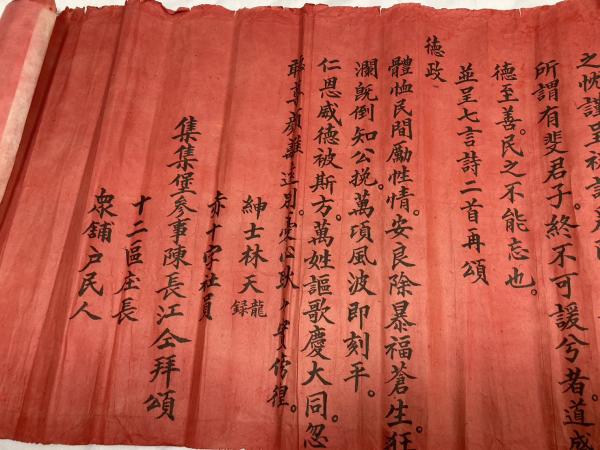 之忱謹呈
所謂有斐君子。終不可諼兮者。道成
德至善。民之不能忘也。
並呈七言詩二首再頌
德政
體恤民間勵性情。安良除暴福蒼生狂
瀾既倒知公挽。萬項風波即刻平。
仁恩威德被斯方。萬姓謳歌慶大同忽
聆喜顏難送別。憂心耿々實傍徨。
紳士林天龍
錄
赤十字社員
集集堡參事陳長江仝拜頌
十二區庄長
眾鋪户民人